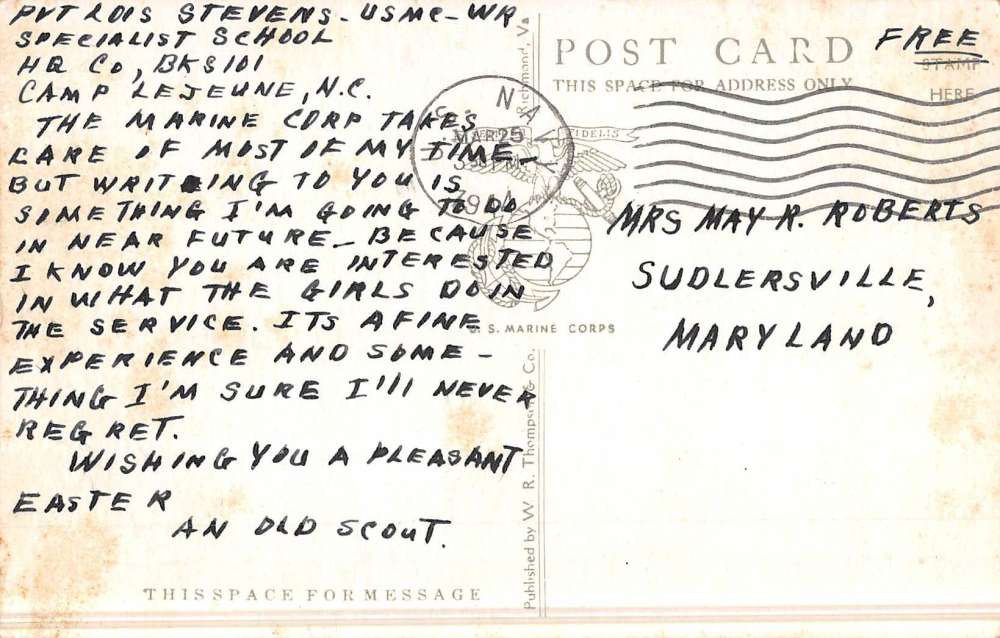 PVT LOIS STEVENS-USMC-WR
SPECIALIST SCHOOL
HQ CO, BKS 101
CAMP LEJEUNE, N.C.
THE MARINE CORP TAKES
CARE OF MOST OF MY TIME_
BUT WRITING TO YOU IS
SOMETHING I'M GOING TO DO
IN NEAR FUTURE_ BECAUSE
I KNOW YOU ARE INTERESTED
IN WHAT THE GIRLS DO IN
THE SERVICE. ITS A FINE
EXPERIENCE AND SOME-
THING I'M SURE I'll NEVER
REGRET.
WISHING YOU A PLEASANT
EASTER
AN OLD SCOUT.
THIS SPACE FOR MESSAGE
Published by W. R. Thompson & Co. Richmond, Va
U. S. MARINE CORPS
FIDELIS
NAVY
MAR 25
POST CARD
THIS SPACE FOR ADDRESS ONLY
FREE
STAMP
HERE
MRS MAY R. ROBERTS
SUDLERSVILLE,
MARYLAND